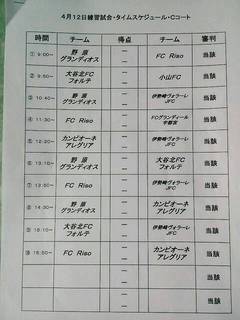 4月12日練習試合・タイムスケジュール・Cコート
時間 チーム 得点 チーム 審判
① 9:00~ 野原グランディオス ー FC Riso 当該
② 9:50~ 大谷北FCフォルテ ー 小山FC 当該
③ 10:40~ 野原グランディオス ー 伊勢崎ヴォラーレJFC 当該
④ 11:30~ FC Riso ー FCグランディール宇都宮 当該
⑤ 12:20~ カンピオーネアレグリア ー 伊勢崎ヴォラーレJFC 当該
⑥ 13:10~ 野原グランディオス ー 大谷北FCフォルテ 当該
⑦ 13:50~ FC Riso ー 伊勢崎ヴォラーレJFC 当該
⑧ 14:30~ 野原グランディオス ー カンピオーネアレグリア 当該
⑨ 大谷北FCフォルテ ー 伊勢崎ヴォラーレJFC 当該
FC Riso ー カンピオーネアレグリア 当該